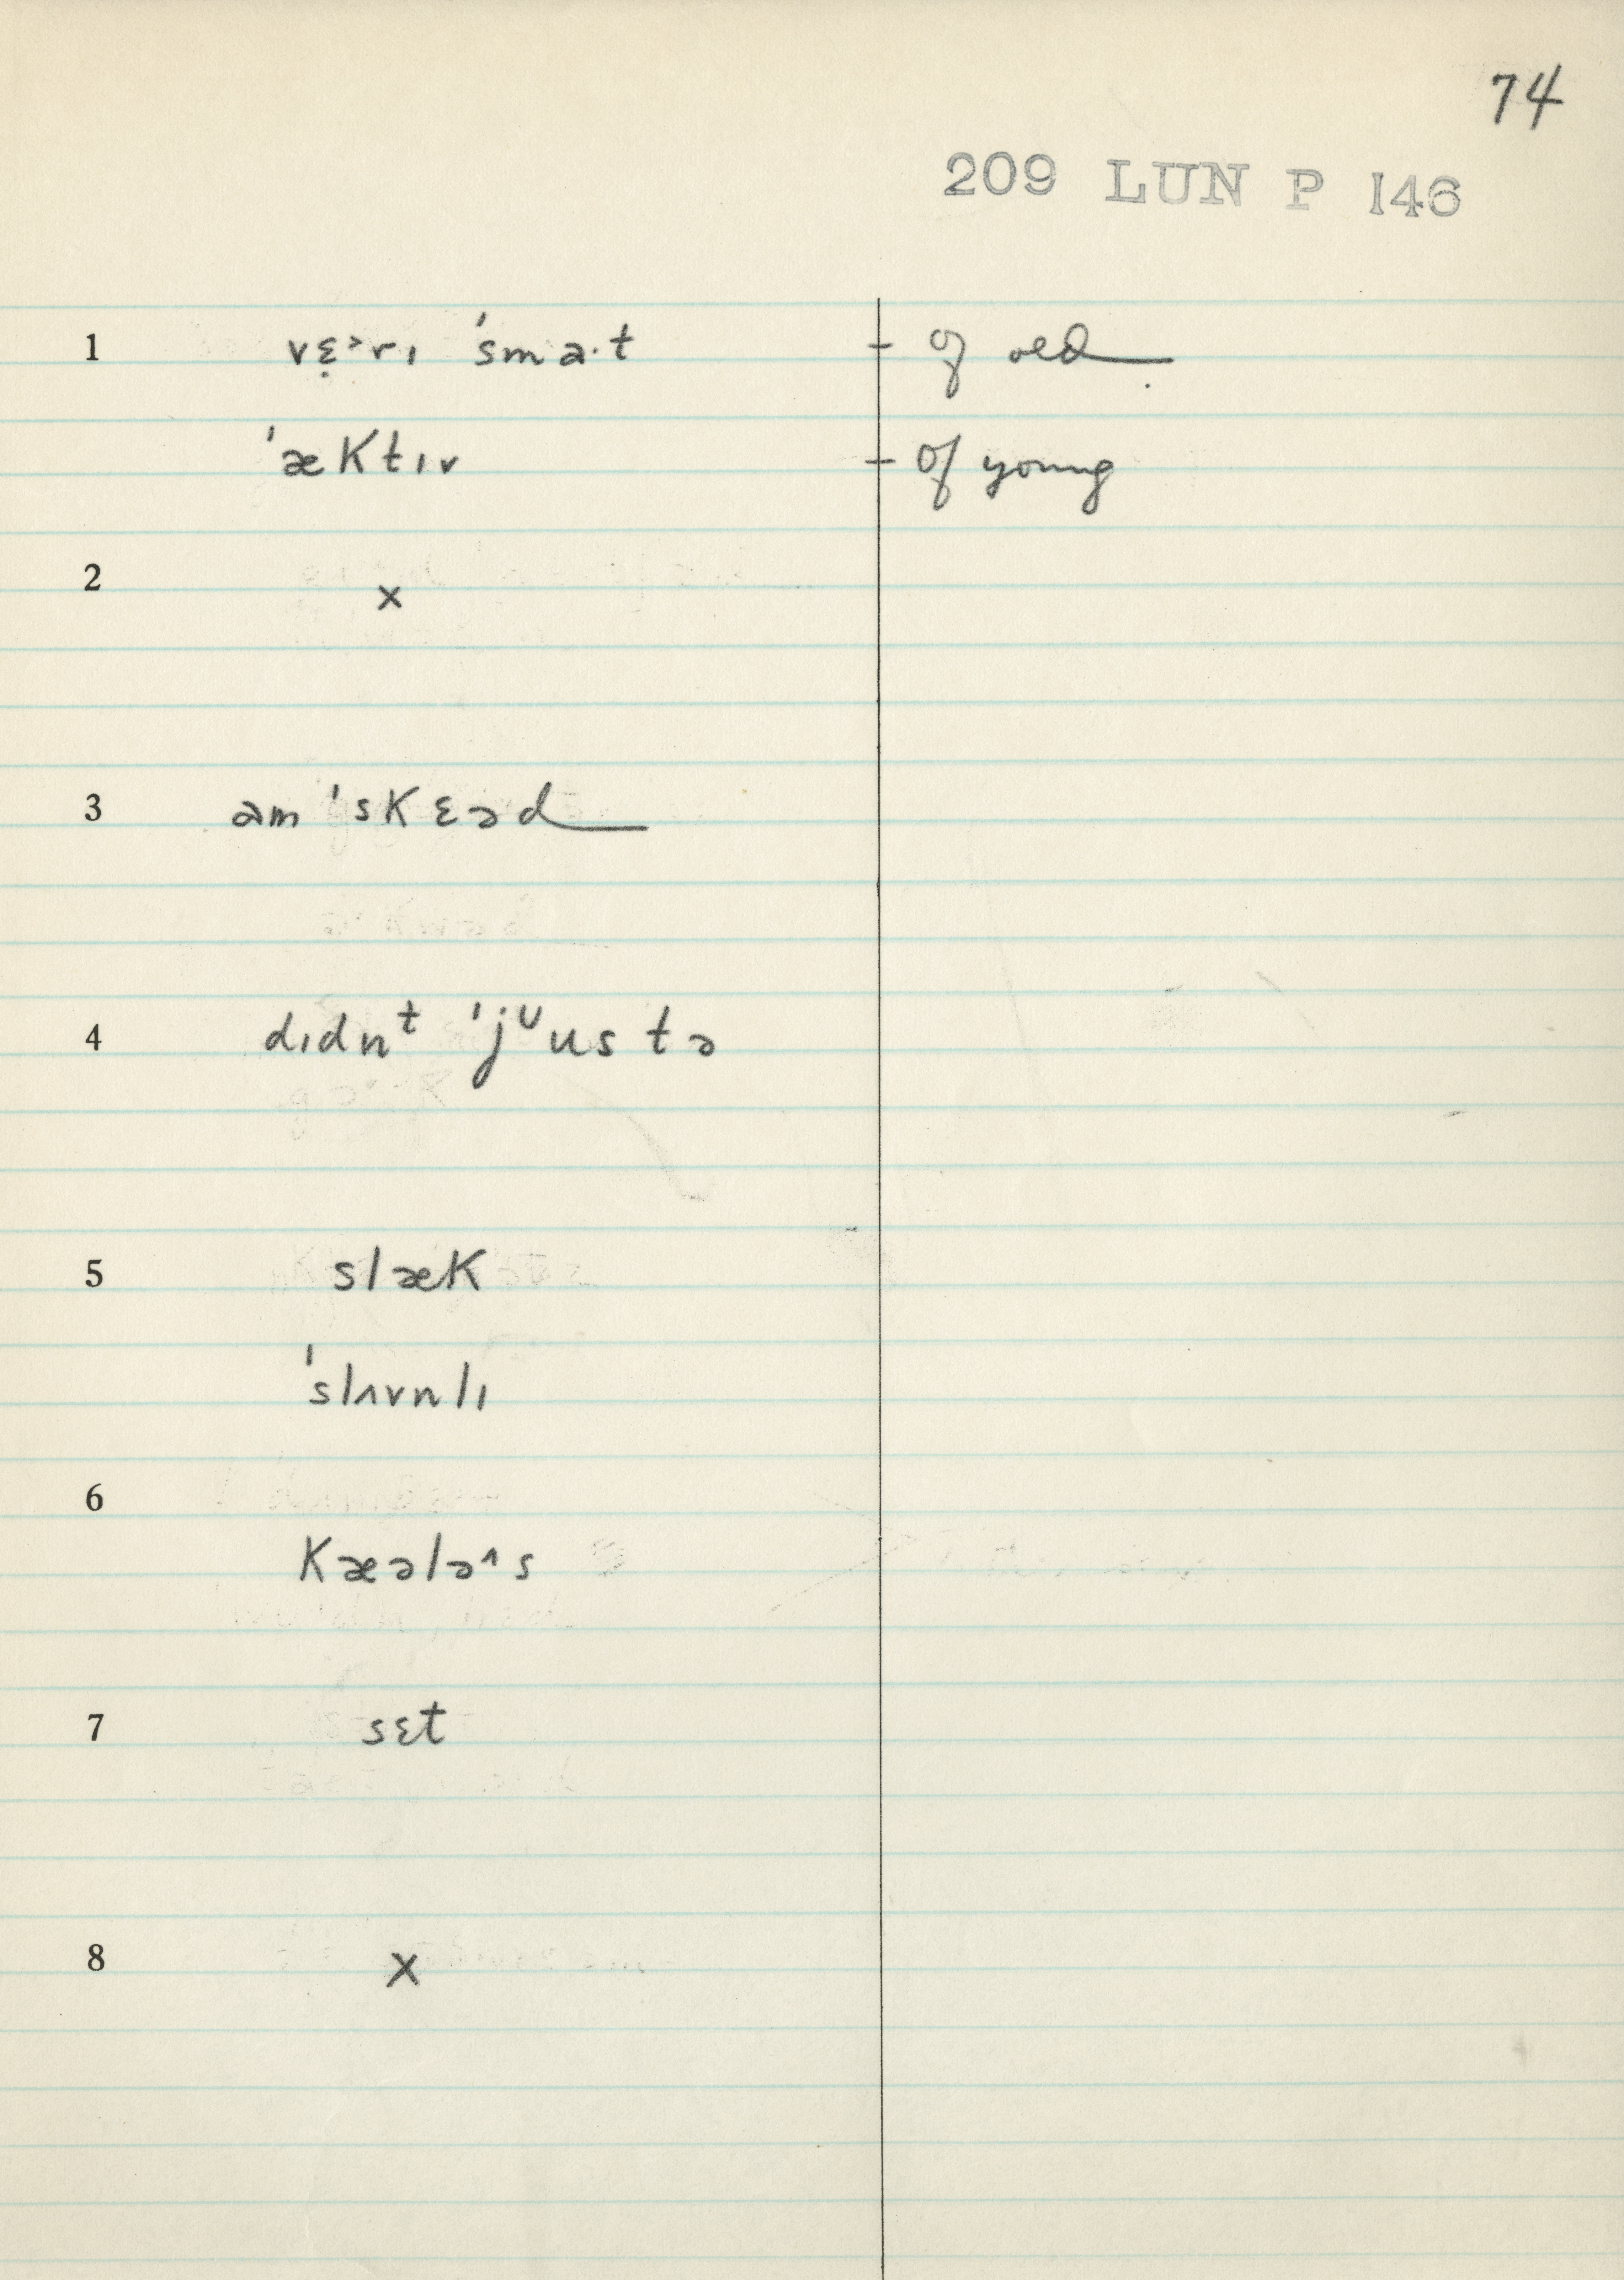 74
209 LUN P 146
1 vɛ̣˃rɪ 'sma·t - of old
'æktɪv - of young
2 x
3 am 'skɛəd
4 dɪdnᵗ 'jᶶus tə
5 slæk
'slʌvnlɪ
6
kæələ^s
7 sɛt
8 x